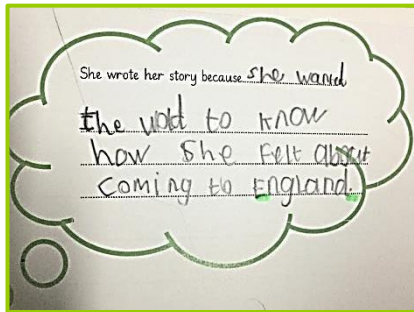 She wrote her story because she wanted
the wold to know
how she felt about
coming to England.